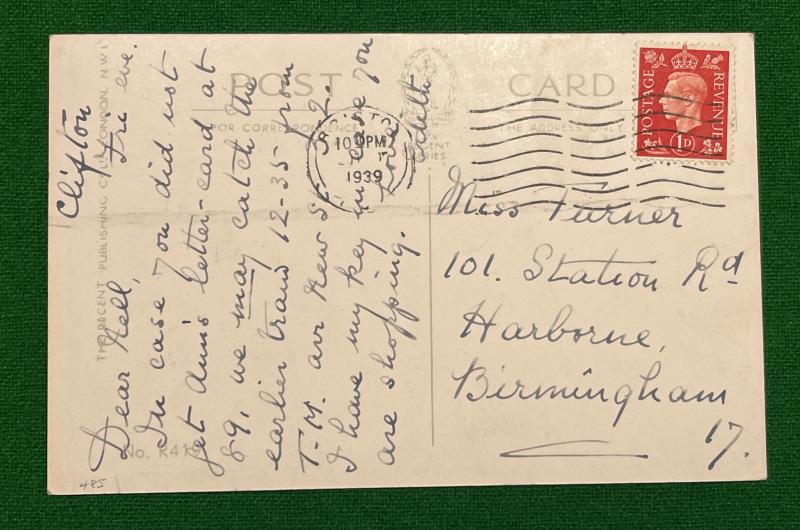 POST CARD
FOR CORRESPONDENCE
THE ADDRESS ONLY
POSTAGE REVENUE
1D
10 PM
1939
Miss Turner
101. Station Rd
Harborne,
Birmingham
17.
Clifton
Fri eve.
Dear Nell,
In case you did not
get Ann's letter-card at
89, we may catch the
earlier train 12-35 from
T-M. arr New St 2.
I have my key in case you
are shopping.
Love
Edith
THE REGENT PUBLISHING CO LONDON. N.W.1
No. R41
485